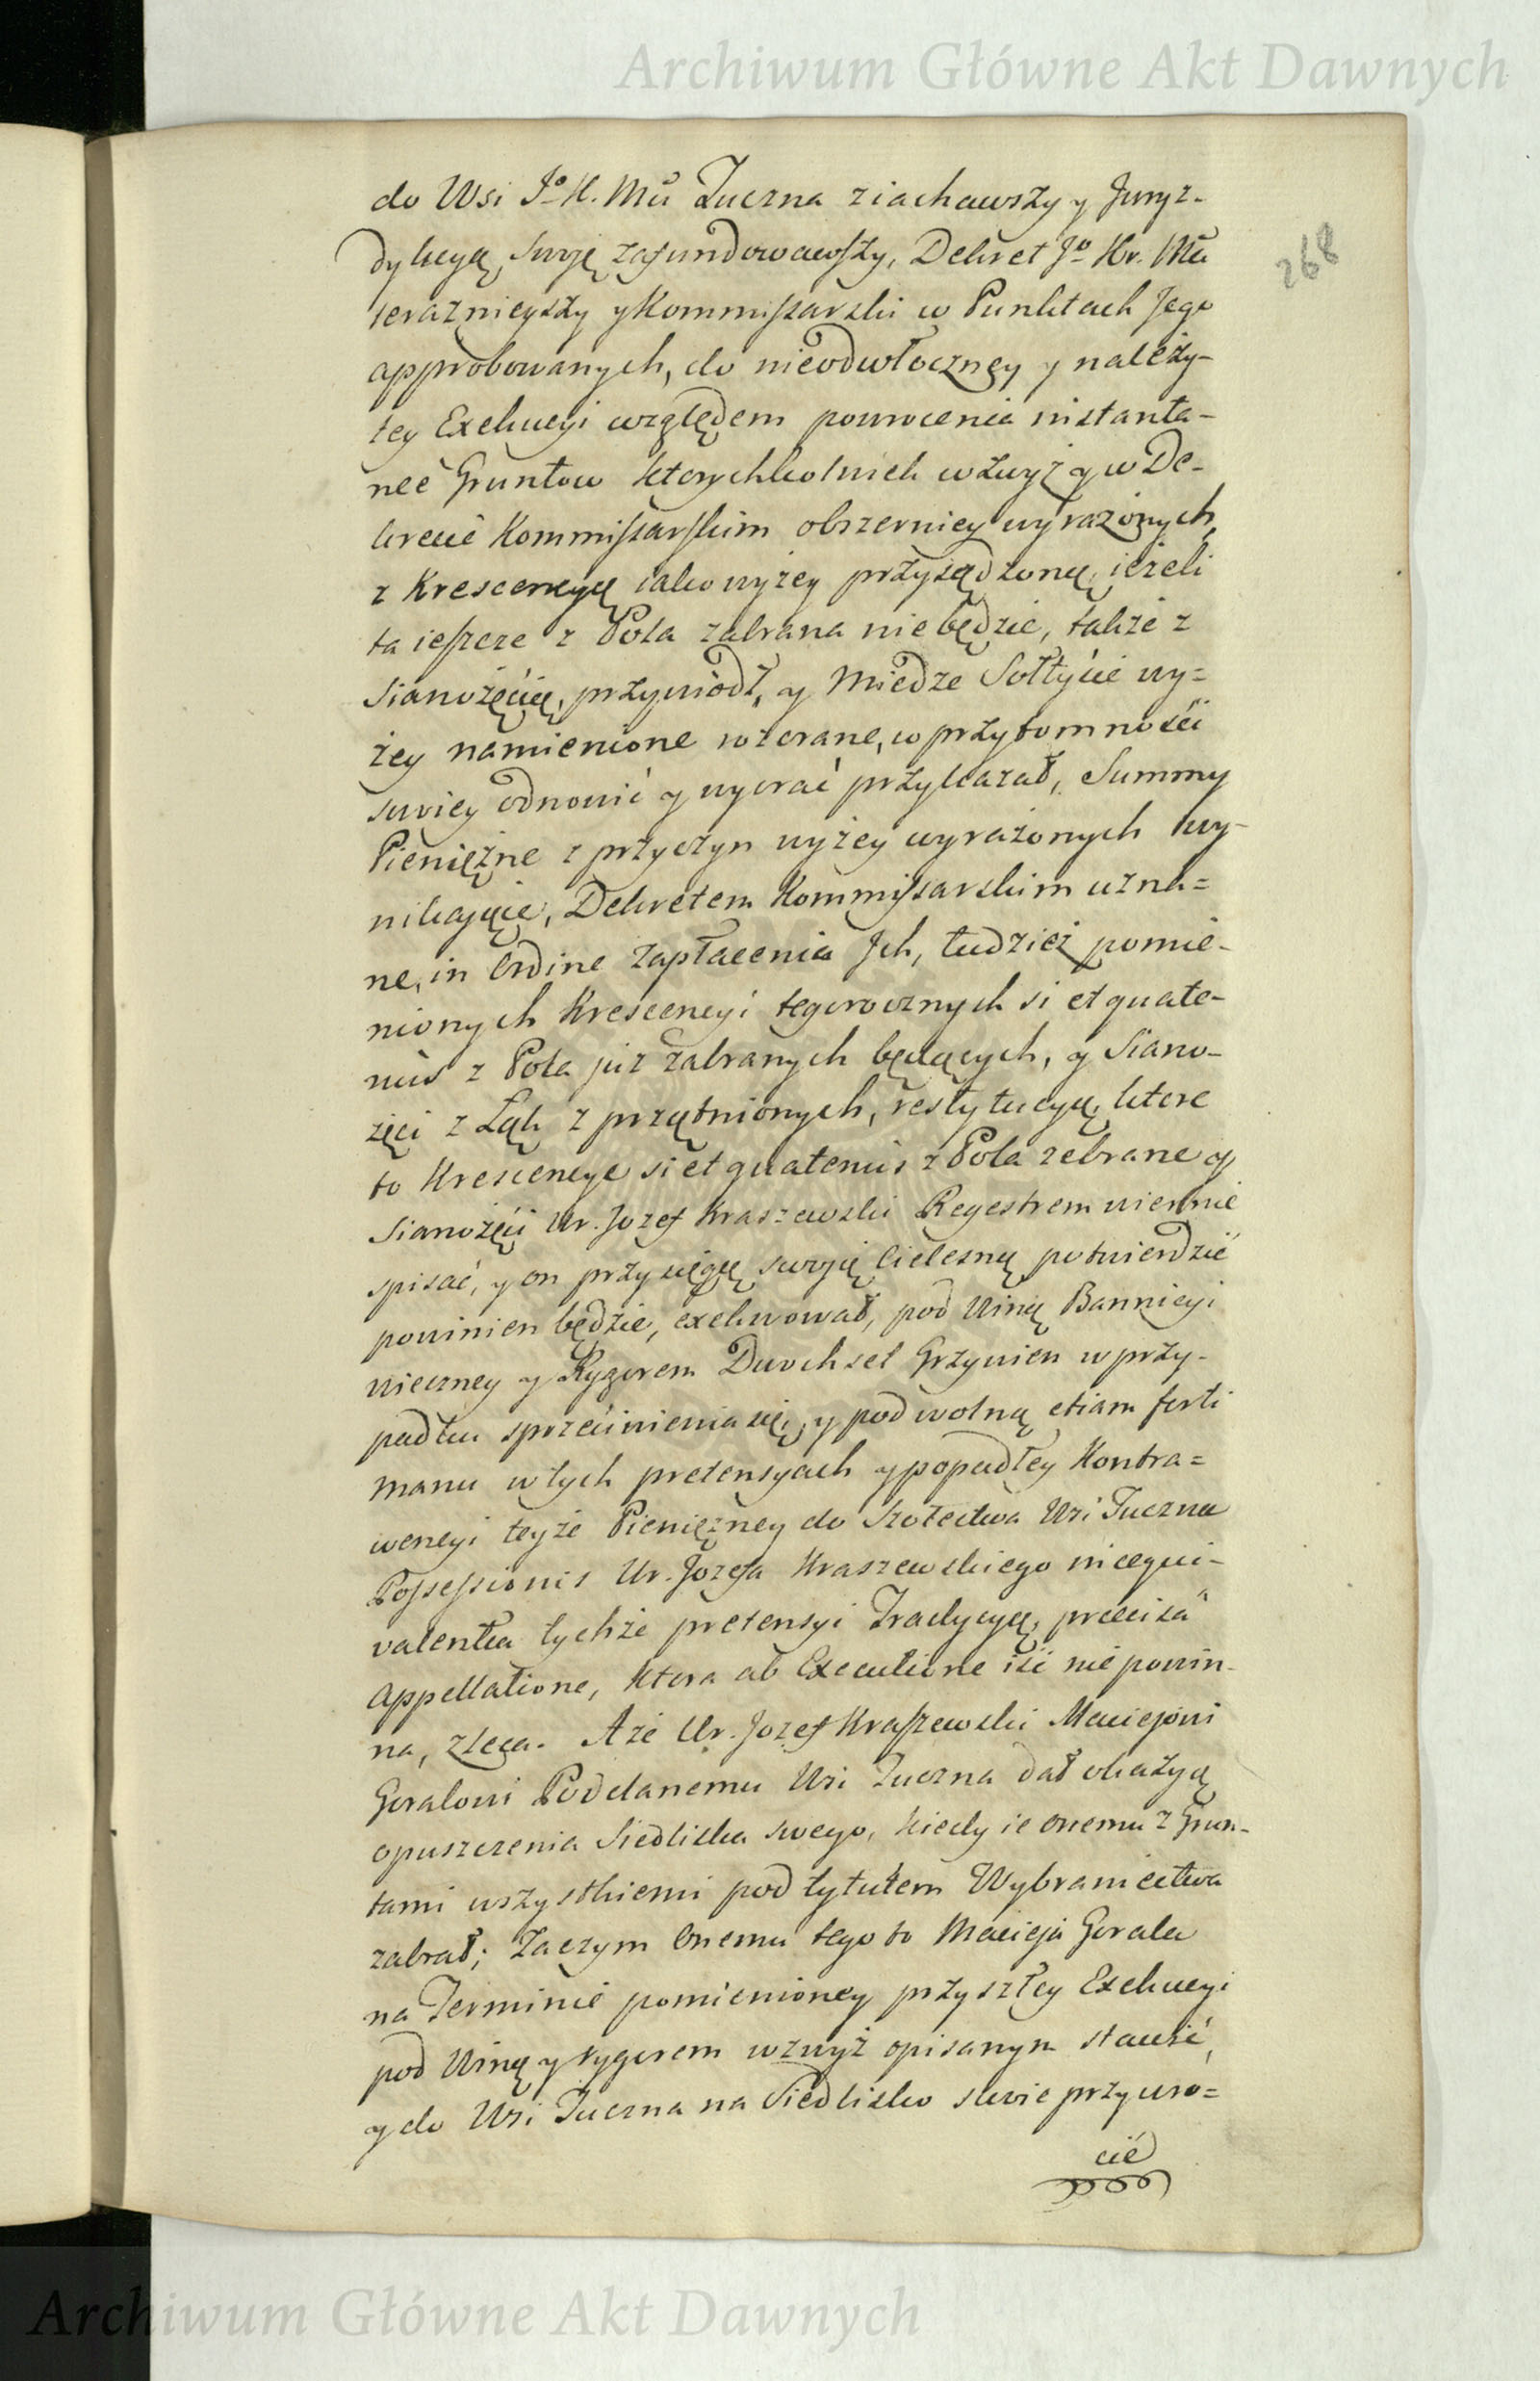 Archiwum Główne Akt Dawnych
268
do Wsi Jº K. Mci Tuczna ziachawszy y Juryz-
dykcyą swoję zafundowawszy, Dekret Jº Kr. Mci
terazniejszy y Kommissarski w Punktach Jego
approbowanych, do nieodwłoczney y należy-
tey Exekucyi względem powrocenia instanta-
nee Gruntow ktorychkolwiek wzwyż y w De-
krecie Kommissarskim obszerniey wyrażonych,
z Krescencyą iako wyżey przysądzoną, ieżeli
ta ieszcze z Pola zabrana nie będzie, także z
Sianożęcią, przywiodł, y Miedze Sołtycie wy=
żey namienione wzorane, w przytomności
swoiey odnowić y wyorać przykazał, Summy
Pieniężne z przyczyn wyżey wyrażonych wy-
nikaiące, Dekretem Kommissarskim uzna=
ne, in Ordine zapłacenia Jch, tudzież pomie-
nionych Krescencyi tegorocznych si et quate-
nus z Pola już zabranych będących, y Siano-
żęci z Łąk z przątnionych, restytucyą, ktore
to Krescencye si et quatenus z Pola zebrane y
Sianożęci Ur. Jozef Kraszewski Regestrem wiernie
spisać, y on przysięgą swoją Cielesną potwierdzić
powinien będzie, exekwował, pod Winą Bannicyi
wieczney y Rygorem Dwochset Grzywien w przy-
padku sprzeciwienia się, y pod wolną etiam forti
manu w tych pretensyach y popadłey Kontra=
wencyi teyże Pieniężney do Szołectwa Wsi Tuczna
Possessionis Ur. Jozefa Kraszewskiego in aequi-
valentia tychże pretensyi Tradycyą, praecisa
Appellatione, ktora ab Executione iść nie powin-
na, zleca. A że Ur. Jozef Kraszewski Maciejowi
Goralowi Poddanemu Wsi Tuczna dał okazyą
opuszczenia Siedliska swego, kiedy ie onemu z Grun-
tami wszystkiemi pod tytułem Wybraniectwa
zabrał; Zaczym Onemu tego to Macieja Gorala
na Terminie pomienioney przyszłey Exekucyi
pod Winą y rygorem wzwyż opisanym stawić,
y do Wsi Tuczna na Siedlisko swoie przywro=
cić
Archiwum Główne Akt Dawnych